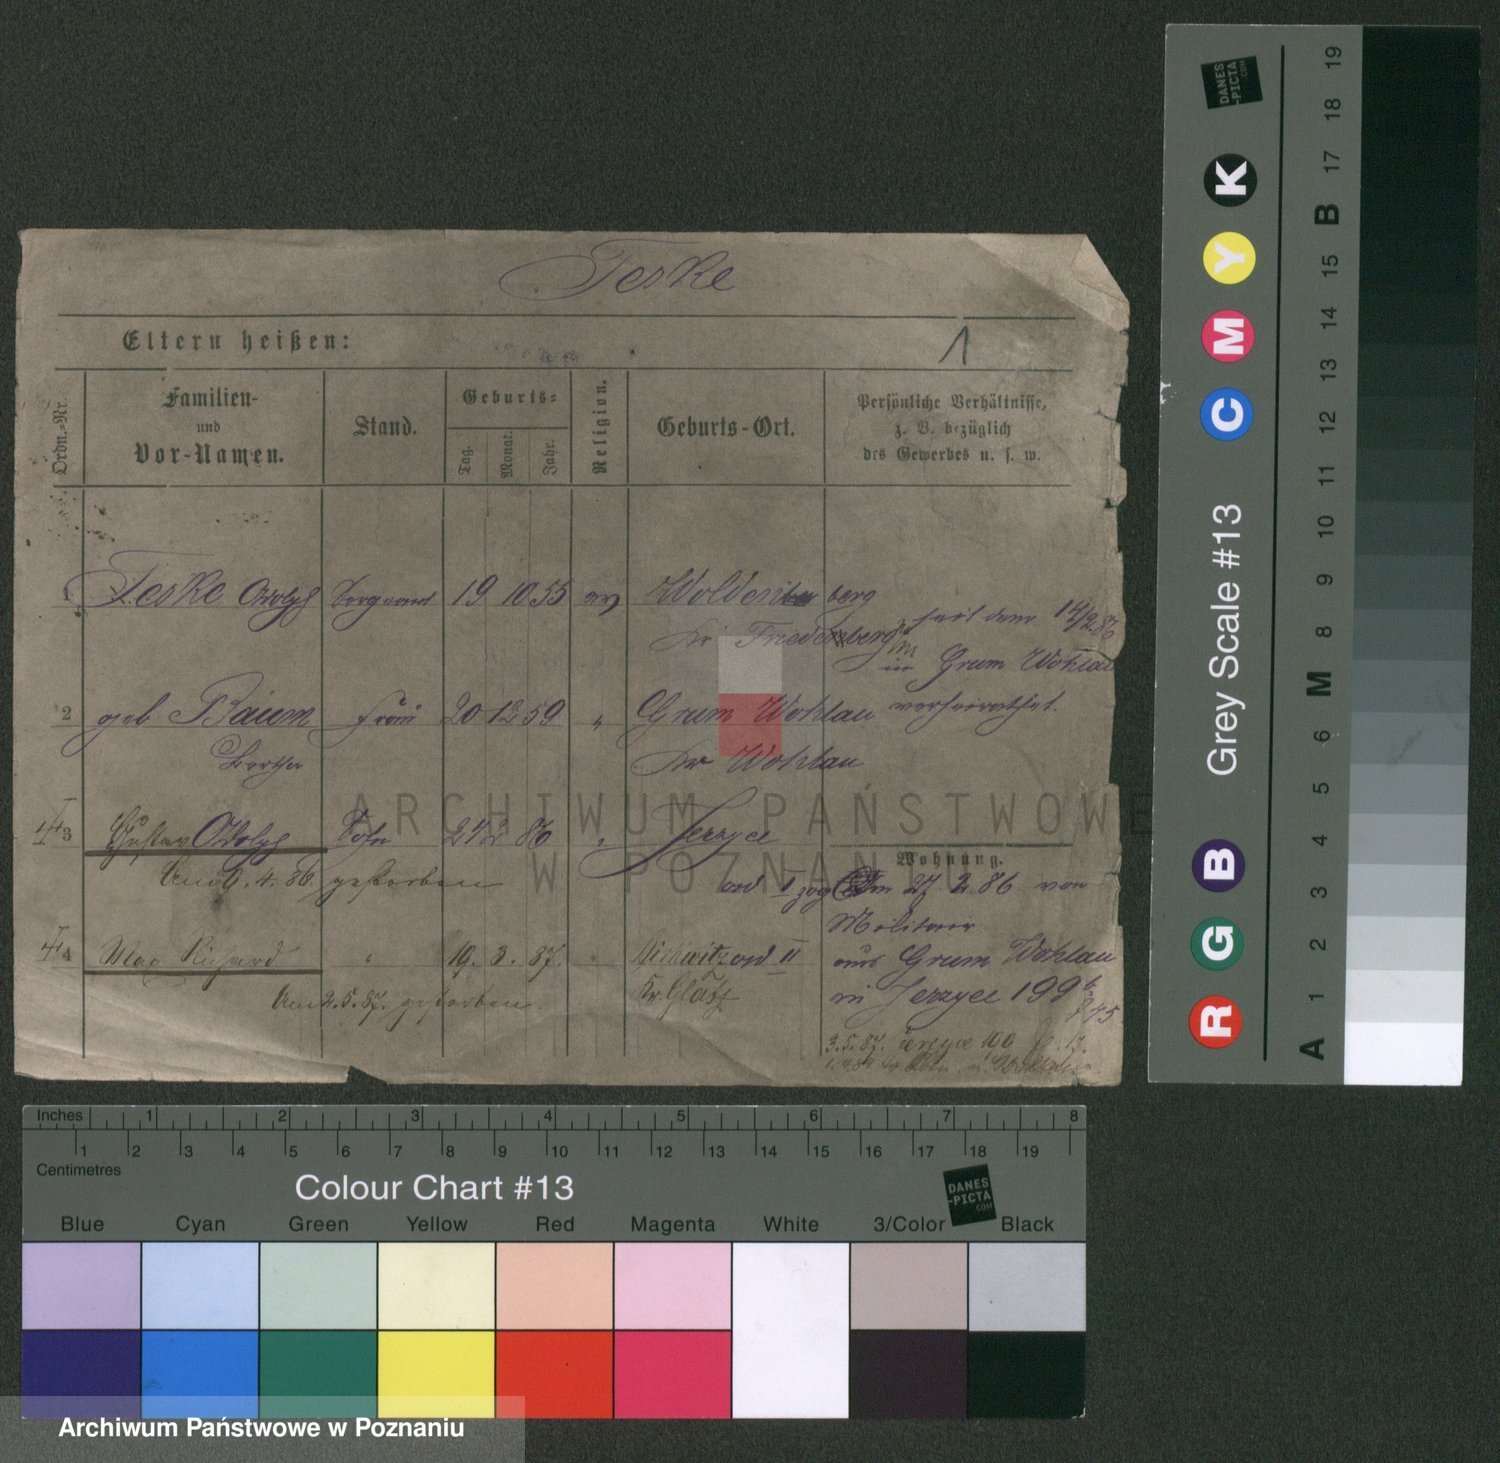 Teske
Eltern heißen:
1
Ordn.-Nr.
Familien-
und
Vor-Namen.
Stand.
Geburts-
Tag.
Monat.
Jahr.
Religion.
Geburts-Ort.
Persönliche Verhältnisse,
z. B. bezüglich
des Gewerbes u. s. w.
1 Teske Adolph Sergeant 19 10 55 ev Woldenberg
Kr Friedeberg seit dem 14/2 86
in Grum Wohlau
2 geb Baum Frau 20 12 59 " Grum Wohlau verheirathet.
Bertha Kr Wohlau
3 Gustav Adolph Sohn 24 2 86 " Jerzyce
Wohnung.
Am 6. 4. 86 gestorben
Am 27. 2 86 von
Militair
4 Max Richard " 19. 3. 87. "
aus Grum Wohlau
Am 2. 5. 87. gestorben Kr. Glatz
in Jerzyce 199
3. 5. 87. Jerzyce 190
ARCHIWUM PAŃSTWOWE
W POZNANIU
Inches 1 2 3 4 5 6 7 8
1 2 3 4 5 6 7 8 9 10 11 12 13 14 15 16 17 18 19
Centimetres
Colour Chart #13
DANES
-PICTA
.COM
Blue Cyan Green Yellow Red Magenta White 3/Color Black
Grey Scale #13
DANES
-PICTA
.COM
R G B C M Y K
A 1 2 3 4 5 6 M 8 9 10 11 12 13 14 15 B 17 18 19
Archiwum Państwowe w Poznaniu